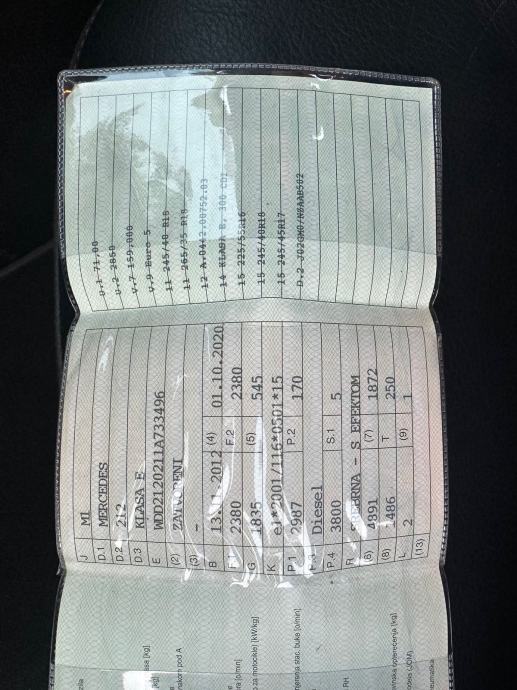 J M1
D.1 MERCEDES
D.2 212
D.3 KLASA E
E WDD2120211A733496
(2) ZATVORENI
(3) -
B 2012 (4) 01.10.2020
2380 F.2 2380
G 1835 (5) 545
K e1*2001/116*0501*15
P.1 2987 P.2 170
Diesel
P.4 3800 S.1 5
R - S EFEKTOM
(6) 4891 (7) 1872
(8) 1486 T 250
L 2 (9) 1
(13)
U.1 71,00
U.2 2850
V.7 159,000
V.9 Euro 5
11 245/40 R18
11 265/35 R18
14 KLASA E, 300 CDI
15 225/55R16
15 245/40R18
15 245/45R17
[kg]
za motocikle) [kW/kg]
stac. buka [o/min]